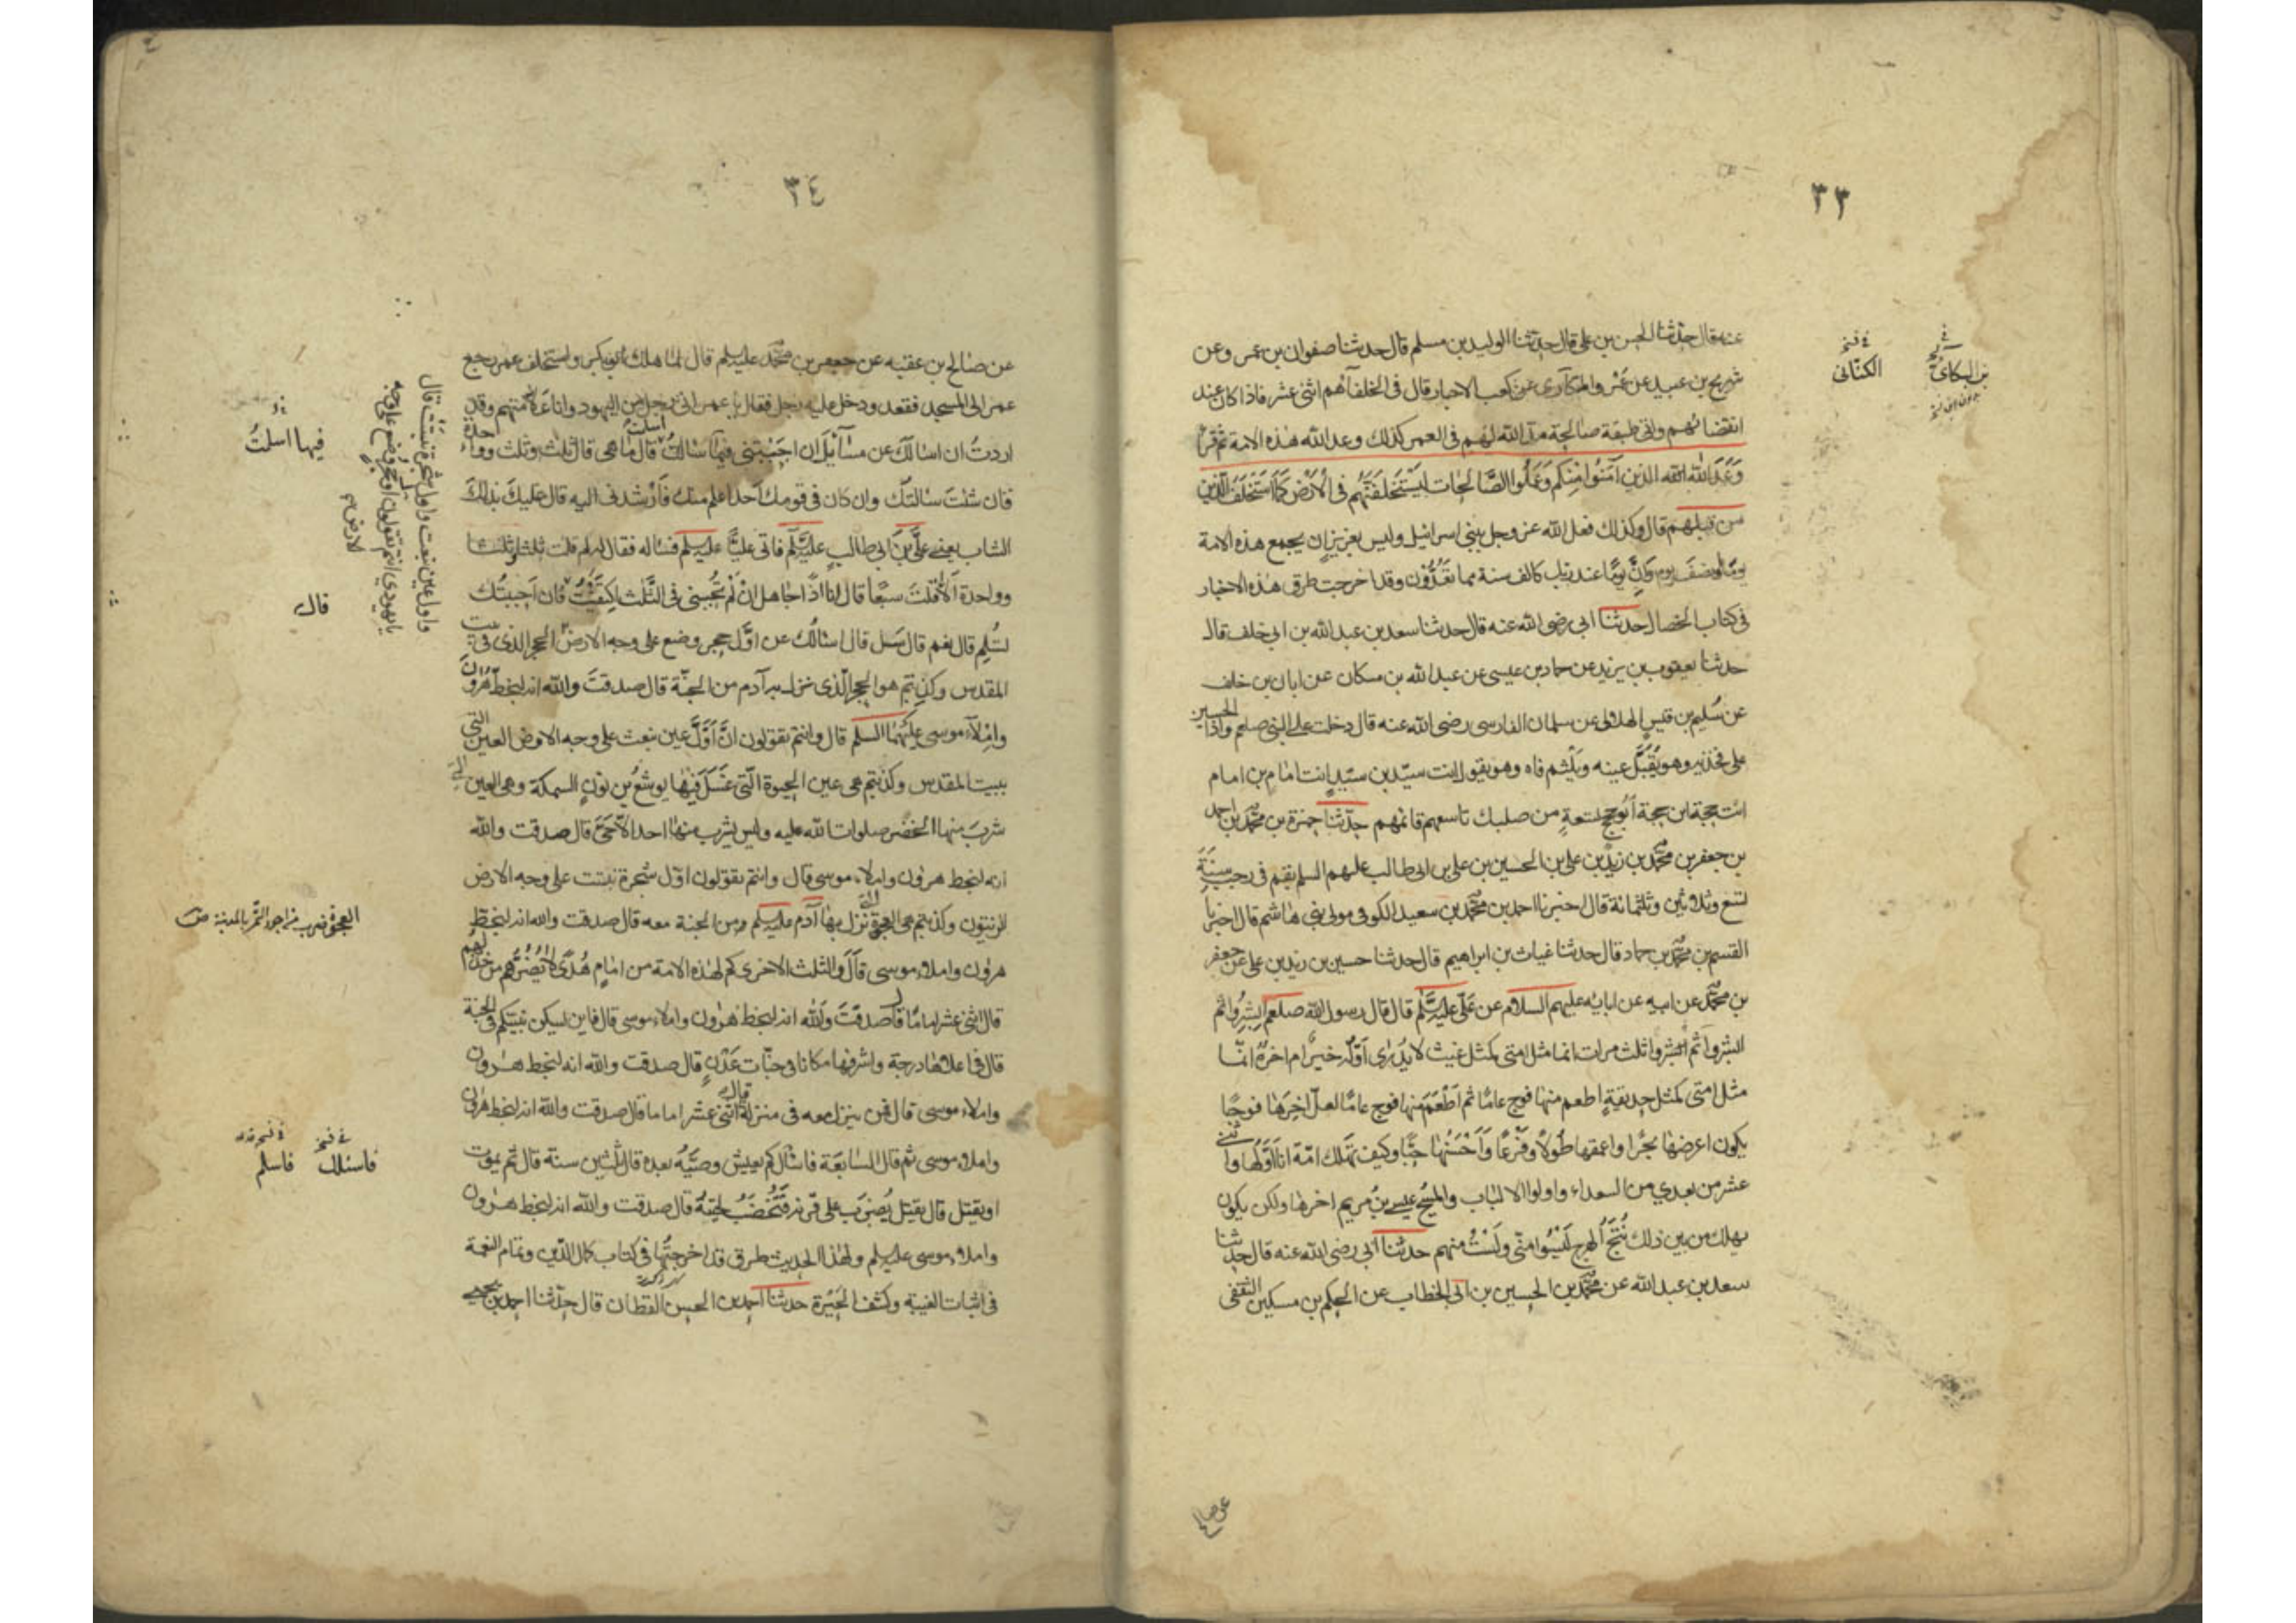 ٣٣
عنه قال حدثنا الحسن بن علي قال حدثنا الوليد بن مسلم قال حدثنا صفوان بن عمر وعن
شريح بن عبيد عن عمر والبكاري عن كعب الاحبار قال في الخلفآء هم اثنى عشر فاذا كان عند
انقضائهم واتى طبقة صالحة مد الله لهم في العمر كذلك وعد الله هذه الامة ثم قرأ
وَعَدَ الله الذين آمَنُوا مِنكم وَعَمِلُوا الصَّالحِات ليَسْتَخلفَنَّهُم في الأرْض كَمَا اسْتَخلَفَ الَّذين
من قبلهم قال وكذلك فعل الله عز وجل ببني اسرائيل وليس بعزيز ان يجمع هذه الامة
يومًا او نصفَ يوم وَإنَّ يومًا عند ربك كالف سنة مما تَعُدُّون وقد اخرجت طرق هذه الاخبار
في كتاب الخصال حدثنا ابي رضي الله عنه قال حدثنا سعد بن عبد الله بن ابي خلف قال
حدثنا يعقوب بن يزيد عن حماد بن عيسى عن عبد الله بن مسكان عن ابان بن خلف
عن سُليم بن قيس الهلالي عن سلمان الفارسي رضي الله عنه قال دخلت على النبي صلعم واذا الحسين
على فخذيه وهو يُقَبِّل عينيه ويَلْثم فاه وهو يقول انت سيّد بن سيّد انت امام بن امام
انت حجة ابن حجة أبو حجج تسعةٍ من صلبك تاسعهم قائمهم حدّثنا حمزة بن محمّد بن احمد
بن جعفر بن محمّد بن زيد بن علي بن الحسين بن علي بن ابي طالب عليهم السلم بقم في رجب سَنَةَ
تسع وثلاثين وثلثمائة قال اخبرنا احمد بن محمّد بن سعيد الكوفي مولى بني هاشم قال اخبرنا
القسم بن محمّد بن حماد قال حدثنا غياث بن ابراهيم قال حدثنا حسين بن زيد بن علي عن جعفر
بن محمّد عن ابيه عن ابائه عليهم السلام عن عَلّى عليه السّلم قال قال رسول الله صلعم ابشِرُوا ثم
ابشروا ثم ابشروا ثلث مرات انما مثل امتي كمثل غيث لا يُدرى اَوّلُه خيرٌ ام اخرهُ انّما
مثل امتى كمثل حديقةٍ اطعم منها فوج عامًا ثم اَطْعَمَ منها فوج عامًا لعلّ آخِرَها فوجًا
يكون اعرضها بحرًا واعمقها طُولاً وفَرْعًا وَاَحْسَنُها جَنًا وكيف تَهلك امّة انا اوّلُها واثنى
عشر من بعدي من السعداء واولوا الالباب والمسيحُ عيسى بنُ مريم اخرها ولكن يكون
يهلك من بين ذلك نُتْجُ الهرج لَيْسُوا منّى ولَسْتُ منهم حدثنا ابي رضي الله عنه قال حدثنا
سعد بن عبد الله عن محمّد بن الحسين بن ابي الخطاب عن الحكم بن مسكين الثقفى
في نسخ
الكنّانى
بن البكائى
عن صالح
٣٤
عن صالح بن عقبه عن جعفر بن محمّد عليه السلم قال لما هلك ابو بكر واستخلف عمر رجع
عمر الى المسجد فقعد ودخل عليه رجل فقال يا عمر انى رجل من اليهود وانا علامتهم وقد
اردتُ ان اسالكَ عن مسآئِلَ ان اجَبْتَنى فيها اسلمتُ قال ما هى قال ثلث وثلث وواحدة
فان شئت سالتك وان كان في قومك احد اعلم منك فاَرْشدنى اليه قال عليكَ بذلكَ
الشاب يعنى علىَّ بنَ ابى طالب عليه السّلم فاتى عليًّا عليه السلم فساله فقال له لم قلت ثلثا وثلثا
وواحدة اَلا قلتَ سبعًا قال انا اذًا جاهل انْ لَمْ تُجبنى في الثَّلث اكتَفَيْتُ قال فان اَجبتُك
تُسْلِم قال نعم قال سَل قال اسالُك عن اوَّل حجر وضع على وجه الارض الحجر الذى في بيت
المقدس وكذبتم هو الحجر الّذى نزل به آدم من الجنّة قال صدقتَ والله انه لبخط هرُونَ
واملآء موسى عليهما السلم قال وانتم تقولون انَّ اَوَّلَ عين نبعت على وجه الارض العين التى
ببيت المقدس وكذبتم هى عين الحيوة الّتى غَسَلَ فيها يوشعُ بن نونٍ السمكة وهى العين التى
شرِبَ منها الخضر صلوات الله عليه وليس يشرب منها احد الاّ حَىَّ قال صدقت والله
انه لبخط هرون واملاء موسى قال وانتم تقولون اوّل شجرة نبتت على وجه الارض
الزيتون وكذبتم هى العجوة التى نزل بها آدم عليه السلم من الجنة معه قال صدقت والله انه لبخط
هرون واملاء موسى قالَ والثلث الاخرى كم لهذه الامة من امامٍ هُدًى لا يَضُرُّهم من خذلهم
قال اثنى عشر امامًا قال صدقتَ والله انه لبخط هرون واملاء موسى قال فاين يسكن نبيّكم في الجنة
قال في اعلاها درجة واشرفها مكانا في جنّات عَدْنٍ قال صدقت والله انه لبخط هرون
واملاء موسى قال فمن ينزل معه في منزله قال اثنى عشر اماما قال صدقت والله انه لبخط هرون
واملاء موسى ثم قال السابعَة فاسْالُكَ كم يعيش وصيُّه بعده قال ثلثين سنة قال ثم يموت
او يقتل قال يقتل يُضرَب على قرنه فتُخضَبُ لحيتهُ قال صدقت والله انه لبخط هرون
واملاء موسى عليه السلم ولهذا الحديث طرق قد اخرجتُها في كتاب كمال الدّين وتمام النعمة
في اثبات الغيبة وكشف الحَيْرَة حدثنا احمد بن الحسن القطان قال حدّثنا احمد بن يحيى
فيها اسلمتُ
واول عين نبعت واول شجرة نبتت قال
يا يهودى انتم تقولون اول حجر وضع على وجه
الارض
قال
العجوة ضرب من اجود التمر بالمدينة
في نسخ
فاسئلك
فاسلم